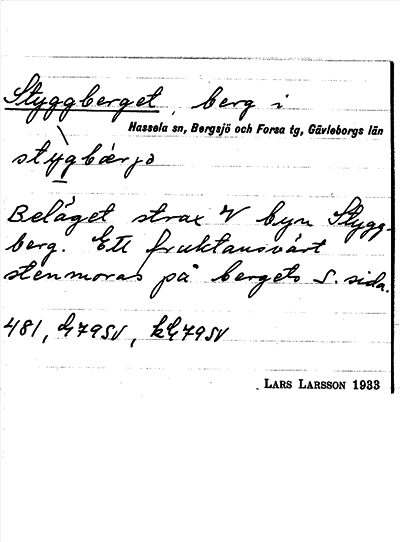 Styggberget, berg i
Hassela sn, Bergsjö och Forsa tg, Gävleborgs län
Beläget strax V byn Stygg-
berg. Ett fruktansvärt
stenmoras på bergets S. sida.
481, h79SV, kh79SV
LARS LARSSON 1933